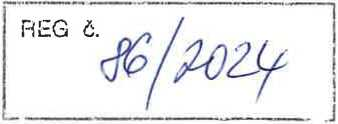 REG č.
86/2024